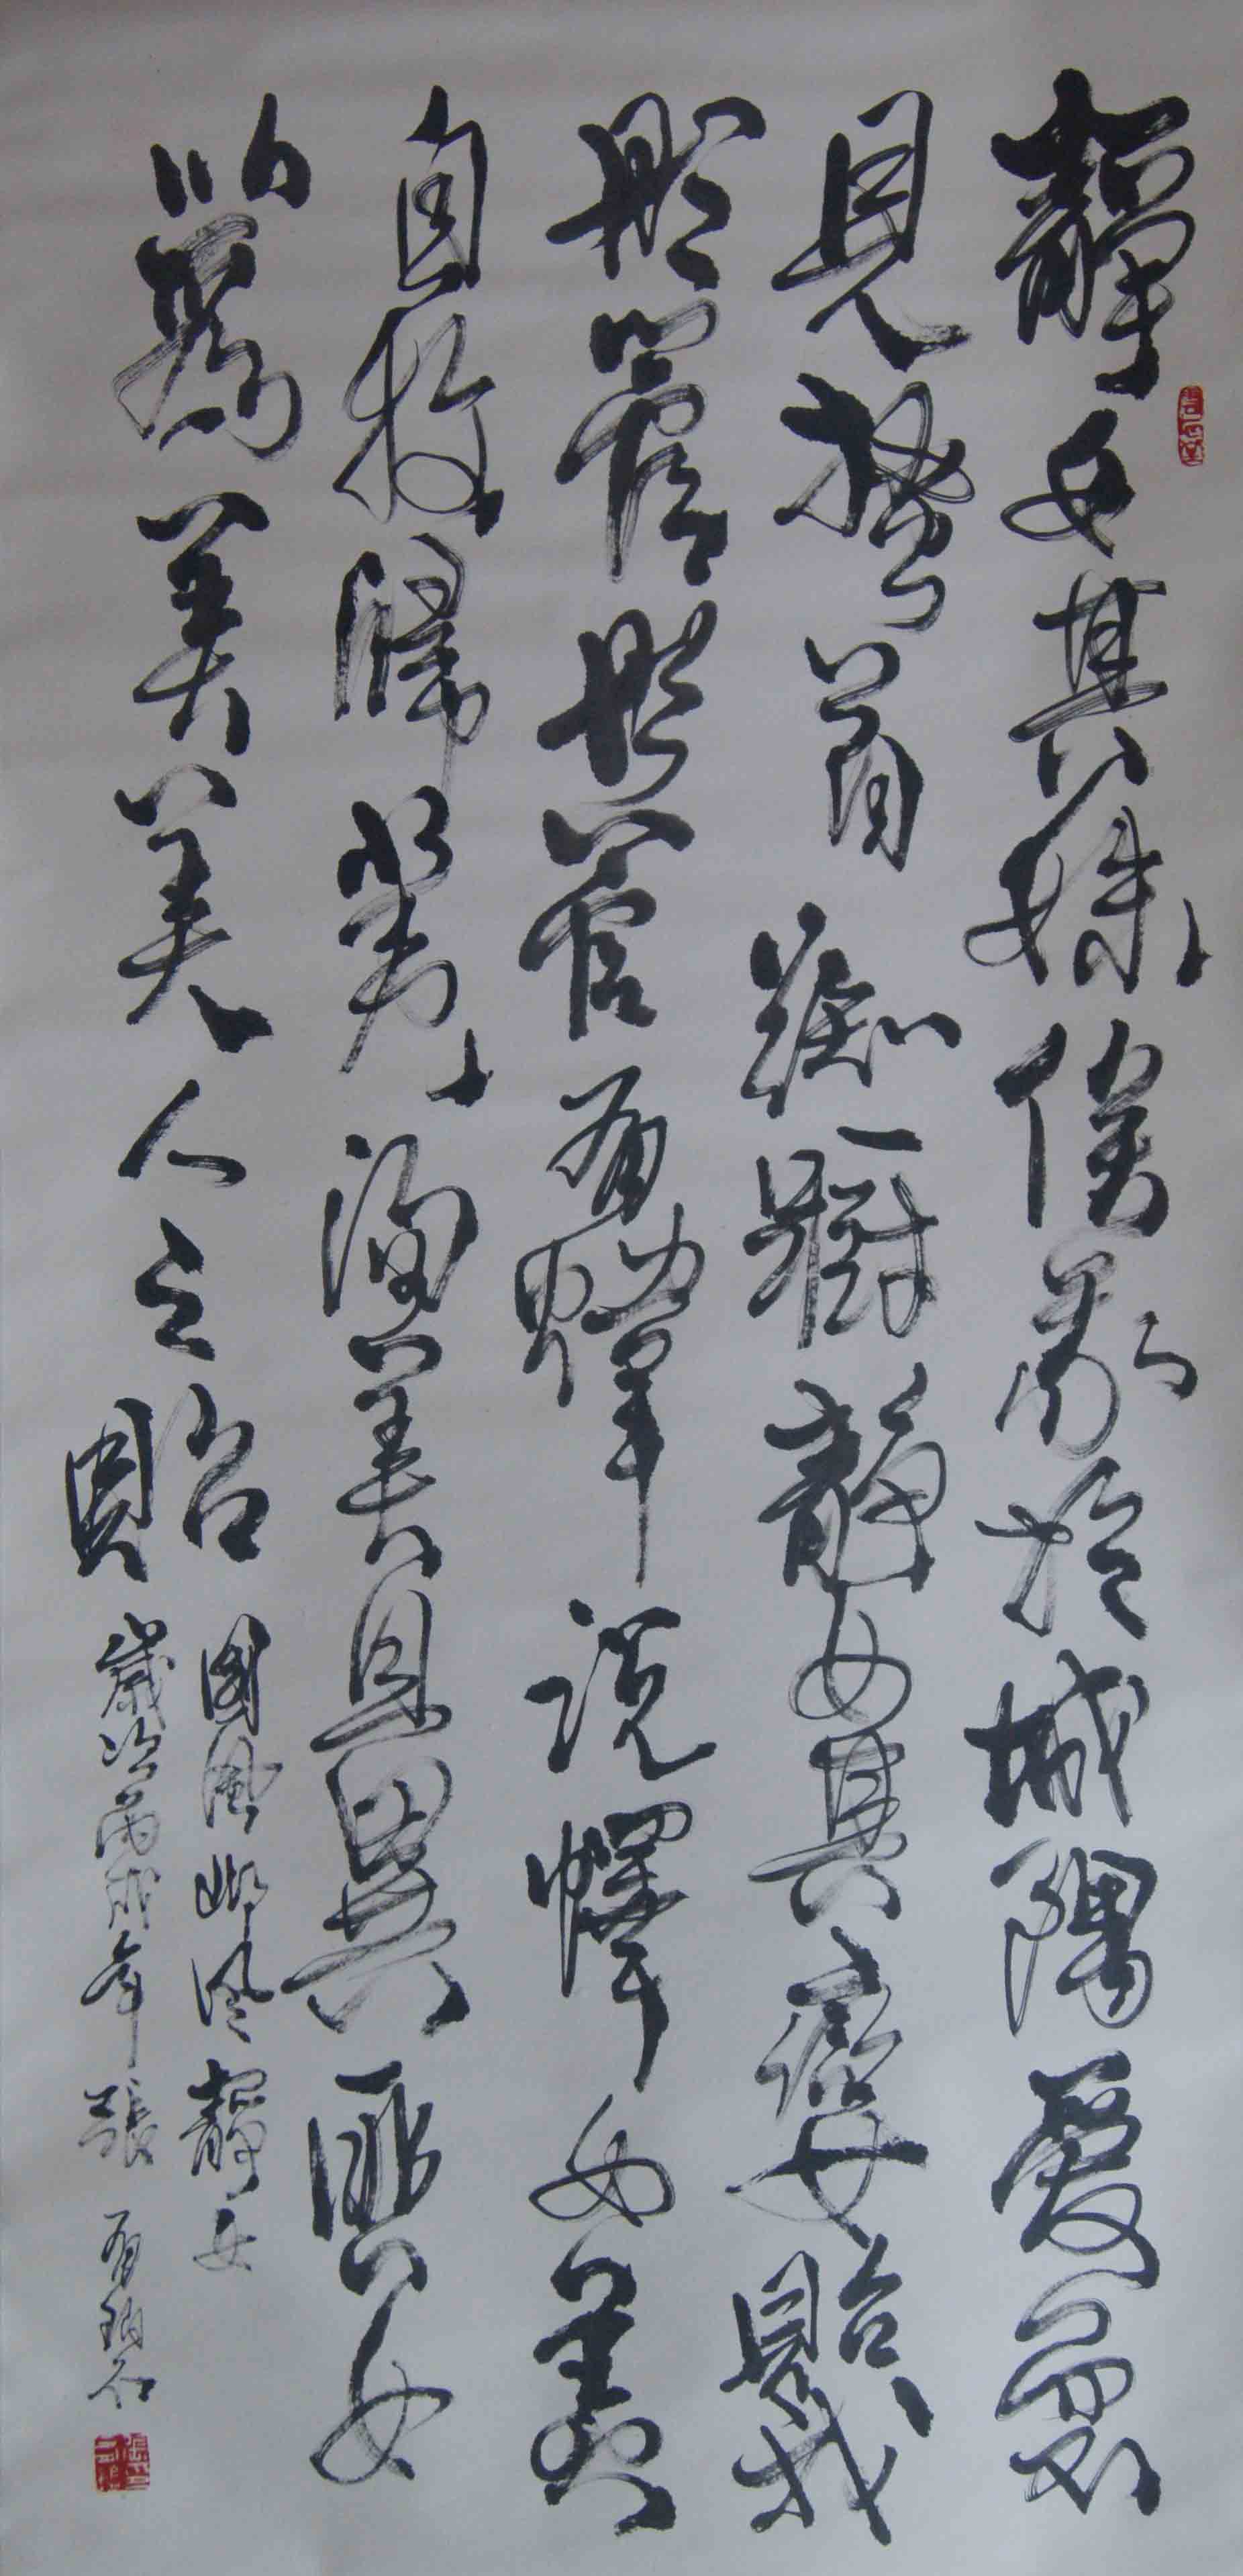 靜女其姝俟我於城隅愛而不
見搔首踟躕靜女其孌貽我
彤管彤管有煒說懌女美
自牧歸荑洵美且異匪女
以為美美人之貽
國風邶風靜女
歲次丙戌年張有